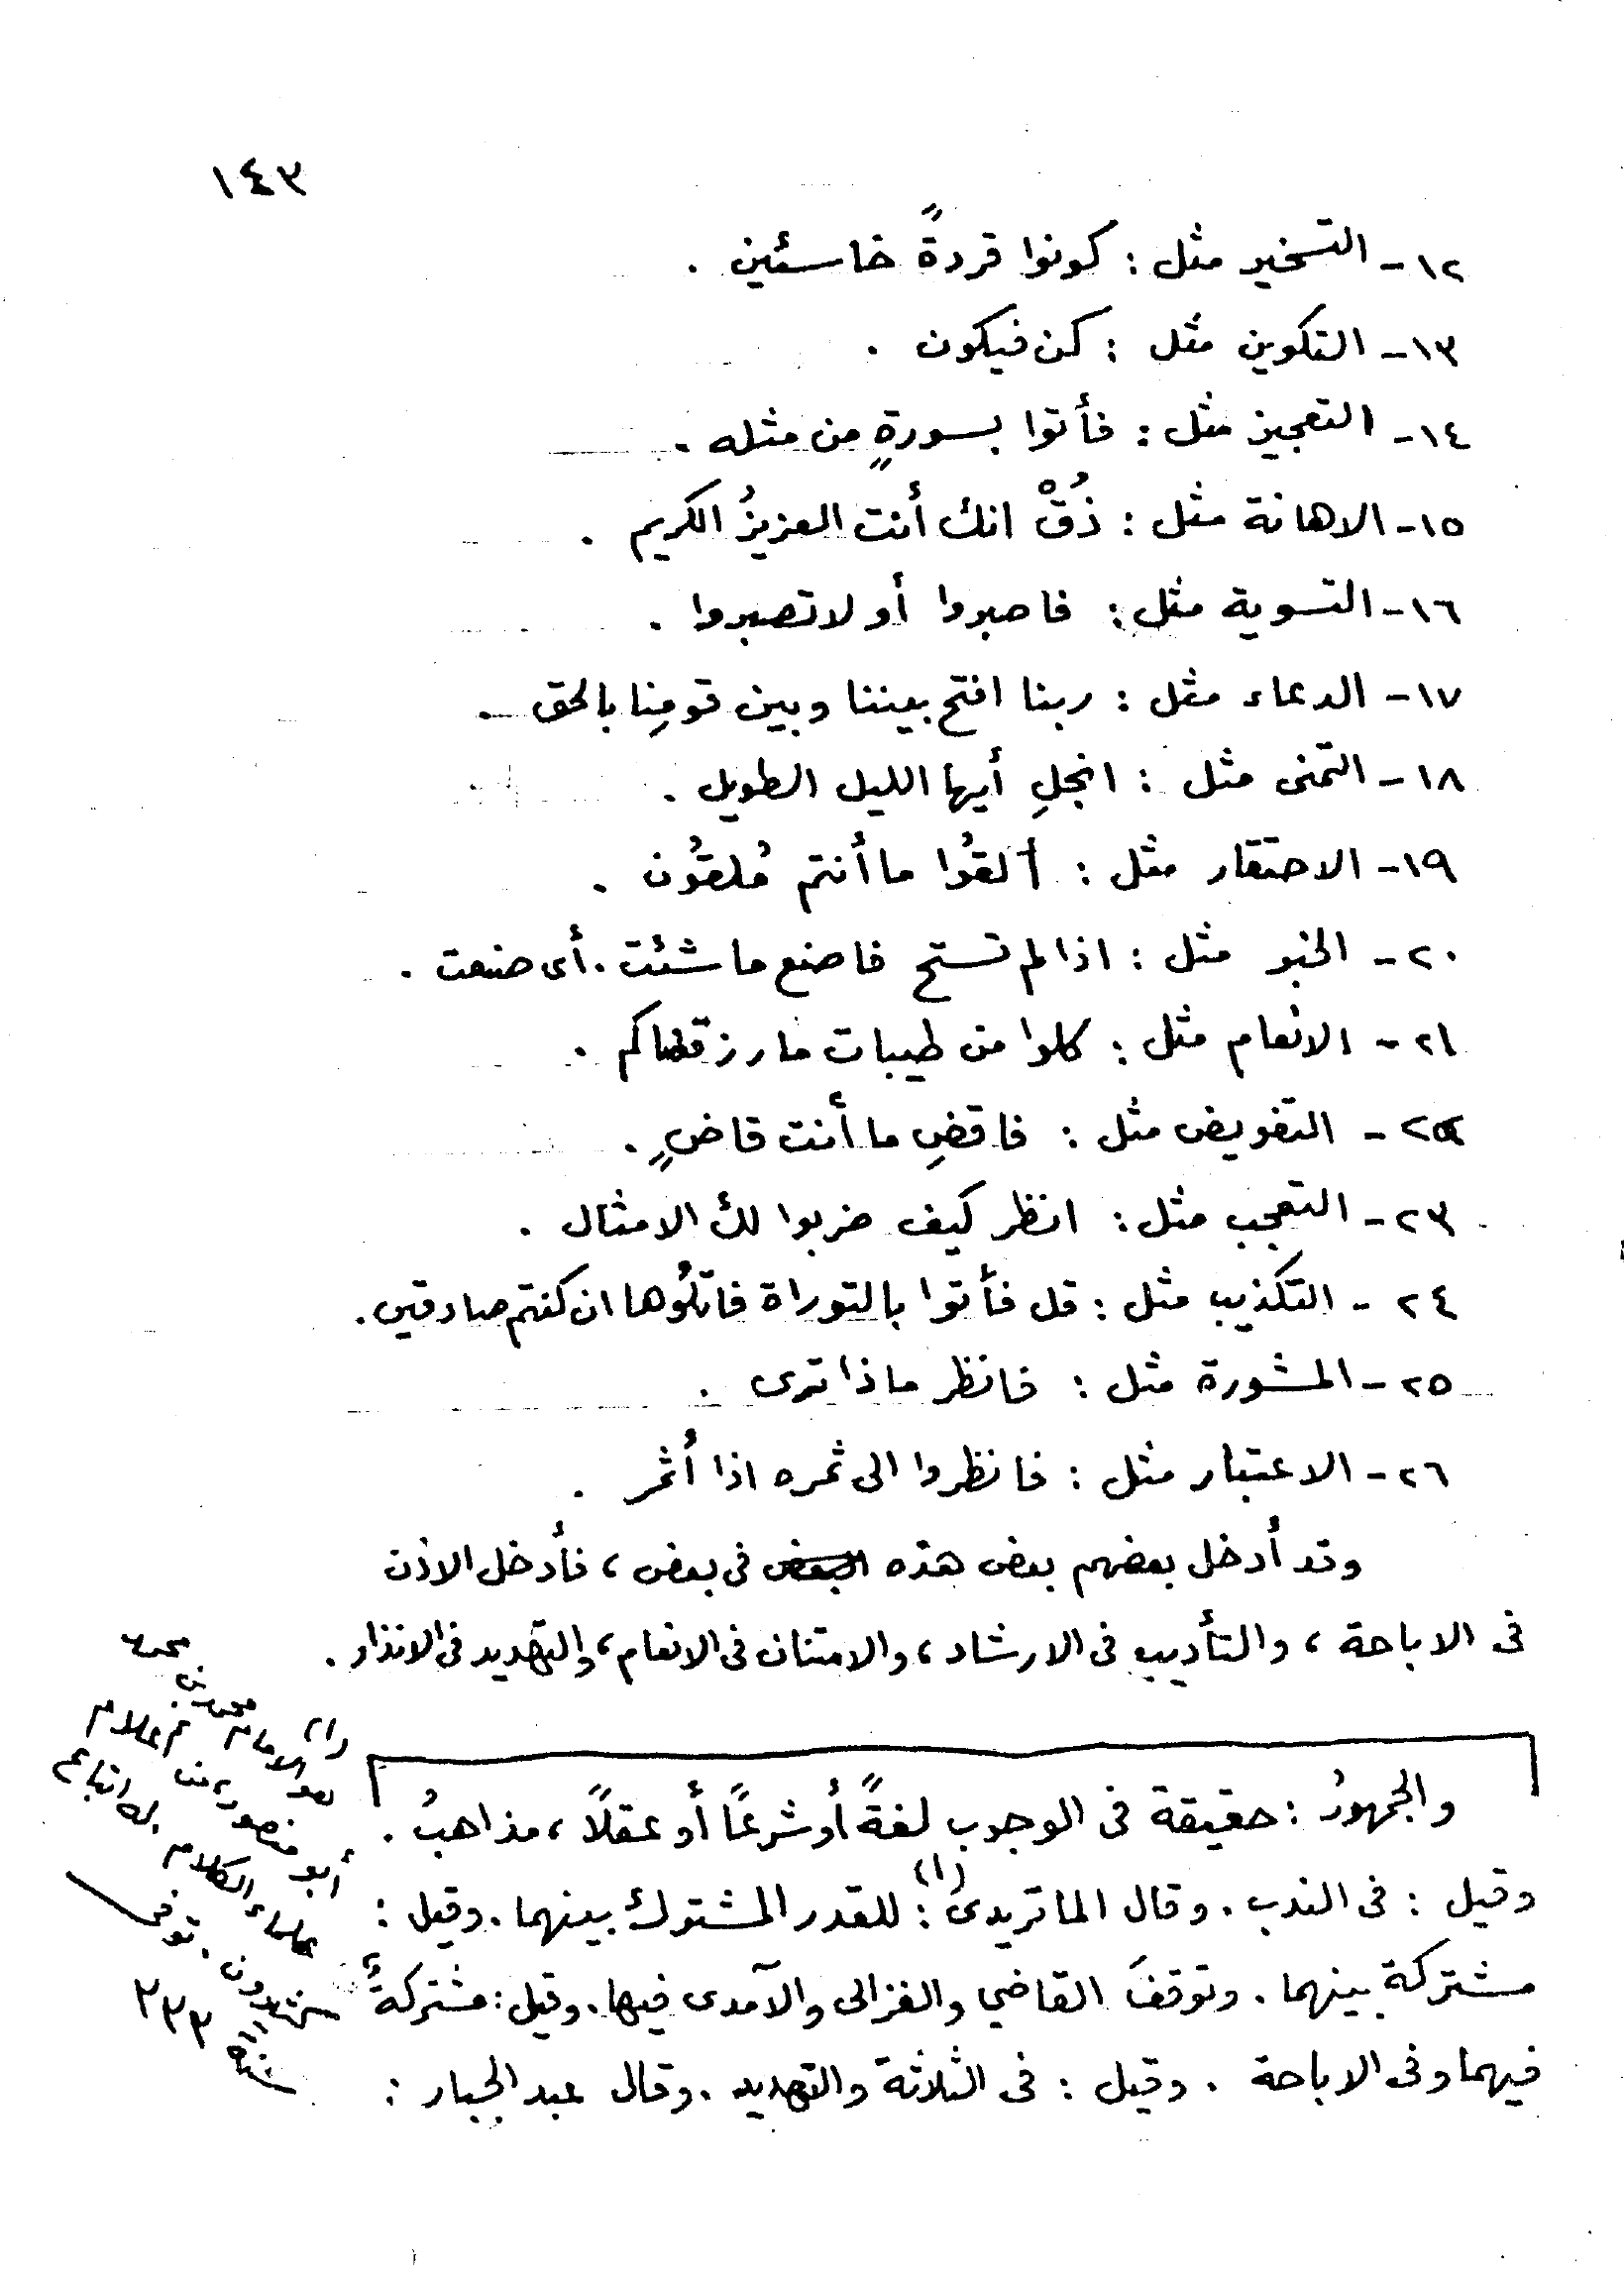 ١٤٣
١٢- التسخير مثل : كونوا قردةً خاسئين .
١٣- التكوين مثل : كن فيكون .
١٤- التعجيز مثل : فأتوا بسورةٍ من مثله .
١٥- الاهانة مثل : ذُقْ انك أنت العزيزُ الكريم .
١٦- التسوية مثل : فاصبروا أو لا تصبروا .
١٧- الدعاء مثل : ربنا افتح بيننا وبين قومِنا بالحق .
١٨- التمنى مثل : انجلِ أيها الليل الطويل .
١٩- الاحتقار مثل : ألقُوا ما أنتم مُلقُون .
٢٠- الخبر مثل : اذا لم تستح فاصنع ما شئت . أى صنعت .
٢١- الانعام مثل : كلوا من طيبات ما رزقناكم .
٢٢- التفويض مثل : فاقضِ ما أنت قاضٍ .
٢٣- التعجب مثل : انظر كيف ضربوا لك الامثال .
٢٤- التكذيب مثل : قل فأتوا بالتوراة فاتلُوها ان كنتم صادقين .
٢٥- المشورة مثل : فانظر ماذا ترى .
٢٦- الاعتبار مثل : فانظروا الى ثمره اذا أثمر .
وقد أدخل بعضهم بعض هذه فى بعض ، فأدخل الاذن
فى الاباحة ، والتأديب فى الارشاد ، والامتنان فى الانعام ، والتهديد فى الانذار .
والجمهورُ : حقيقة فى الوجوب لغةً أو شرعًا أو عقلًا ، مذاهبُ .
وقيل : فى الندب . وقال الماتريدى (١) : للقدر المشترك بينهما . وقيل :
مشتركة بينهما . وتوقفَ القاضي والغزالى والآمدى فيها . وقيل : مشتركةٌ
فيهما وفى الاباحة . وقيل : فى الثلاثة والتهديد . وقال عبد الجبار :
(١) هو الامام محمد بن محمد
أبو منصور ، من أعلام
علماء الكلام . له اتباع
توفى
سنة ٣٣٣